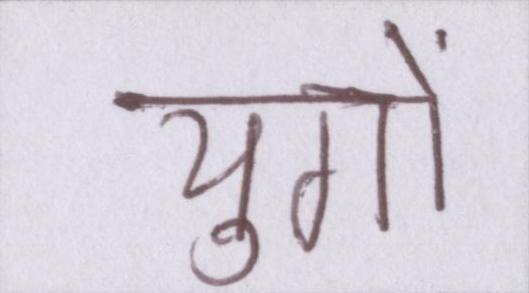 युगों